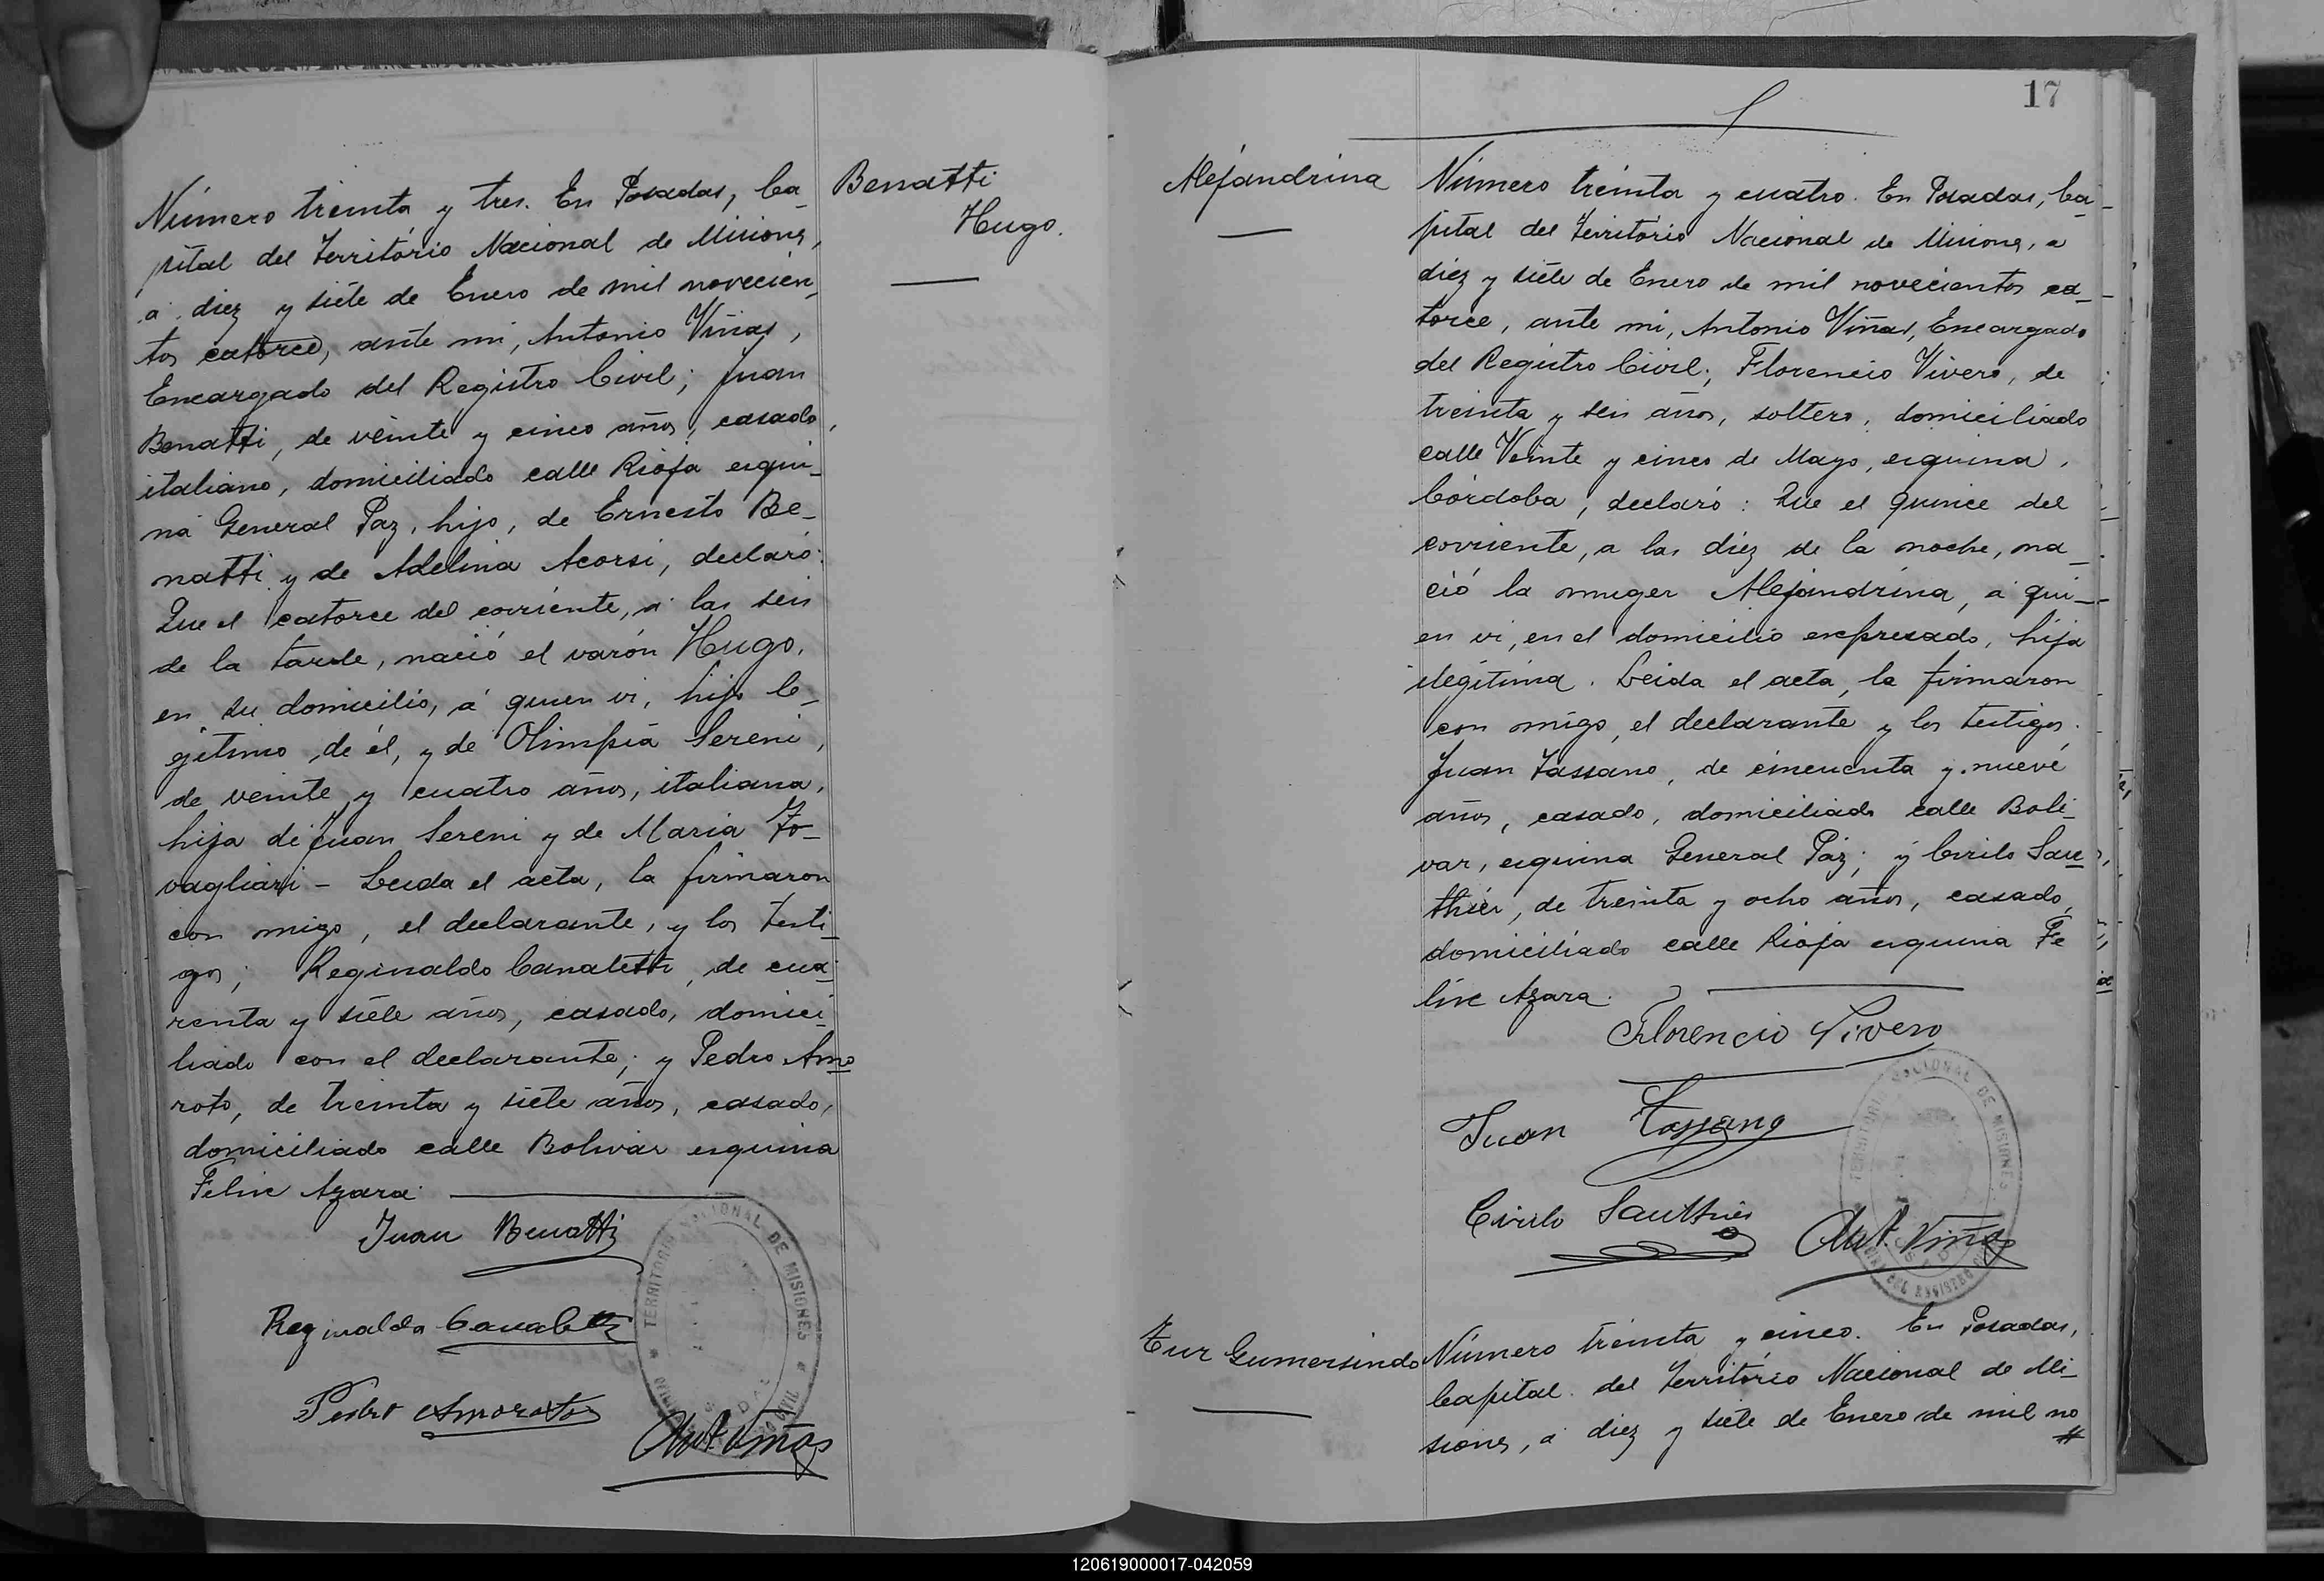 Benatti
Hugo.
Número treinta y tres. En Posadas, Ca_
pital del Territorio Nacional de Misiones,
a diez y siete de Enero de mil novecien_
tos catorce, ante mi, Antonio Viñas,
Encargado del Registro Civil; Juan
Benatti, de veinte y cinco años, casado,
italiano, domiciliado calle Rioja esqui_
na General Paz, hijo, de Ernesto Be_
natti y de Adelina Acorsi, declaró:
Que el catorce del corriente, a las seis
de la tarde, nació el varón Hugo,
en su domicilio, á quien vi, hijo le_
gitimo de él, y de Olimpia Sereni,
de veinte y cuatro años, italiana,
hija de Juan Sereni y de Maria Fo_
vagliari - Leida el acta, la firmaron
con migo, el declarante, y los testi_
gos; Reginaldo Canaletti, de cua_
renta y siete años, casado, domici_
liado con el declarante; y Pedro Amo_
roto, de treinta y siete años, casado,
domiciliado calle Bolivar esquina
Felix Azara.
Juan Benatti
Reginaldo Canaletti
Pedro Amoroto
Ant. Viñas
TERRITORIO NACIONAL DE MISIONES
17
Alejandrina
Número treinta y cuatro. En Posadas, Ca_
pital del Territorio Nacional de Misiones, a
diez y siete de Enero de mil novecientos ca_
torce, ante mi, Antonio Viñas, Encargado
del Registro Civil; Florencio Vivero, de
treinta y seis años, soltero, domiciliado
calle Veinte y cinco de Mayo, esquina,
Córdoba, declaró: Que el quince del
corriente, a las diez de la noche, na_
ció la muger Alejandrina, a qui_
en vi, en el domicilio expresado, hija
ilegitima. Leida el acta, la firmaron
con migo, el declarante y los testigos.
Juan Tassano, de cincuenta y nueve
años, casado, domiciliado calle Boli_
var, esquina General Paz; y Cirilo Sau_
thier, de treinta y ocho años, casado,
domiciliado calle Rioja esquina Fe
lix Azara.
Florencio Vivero
Juan Tassano
Cirilo Sauthier
Ant. Viñas
TERRITORIO NACIONAL DE MISIONES
Tur Gumersindo
Número treinta y cinco. En Posadas,
Capital del Territorio Nacional de Mi_
siones, a diez y siete de Enero de mil no
120619000017-042059